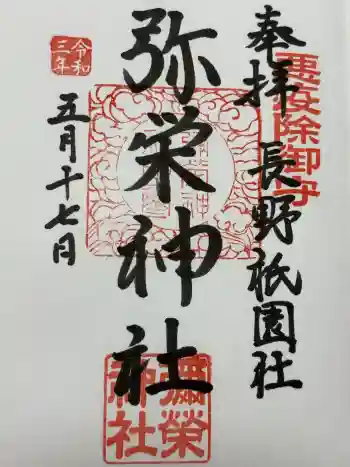 奉拝 長野祇園社
悪疫除御守
弥栄神社
彌榮神社
令和三年
五月十七日